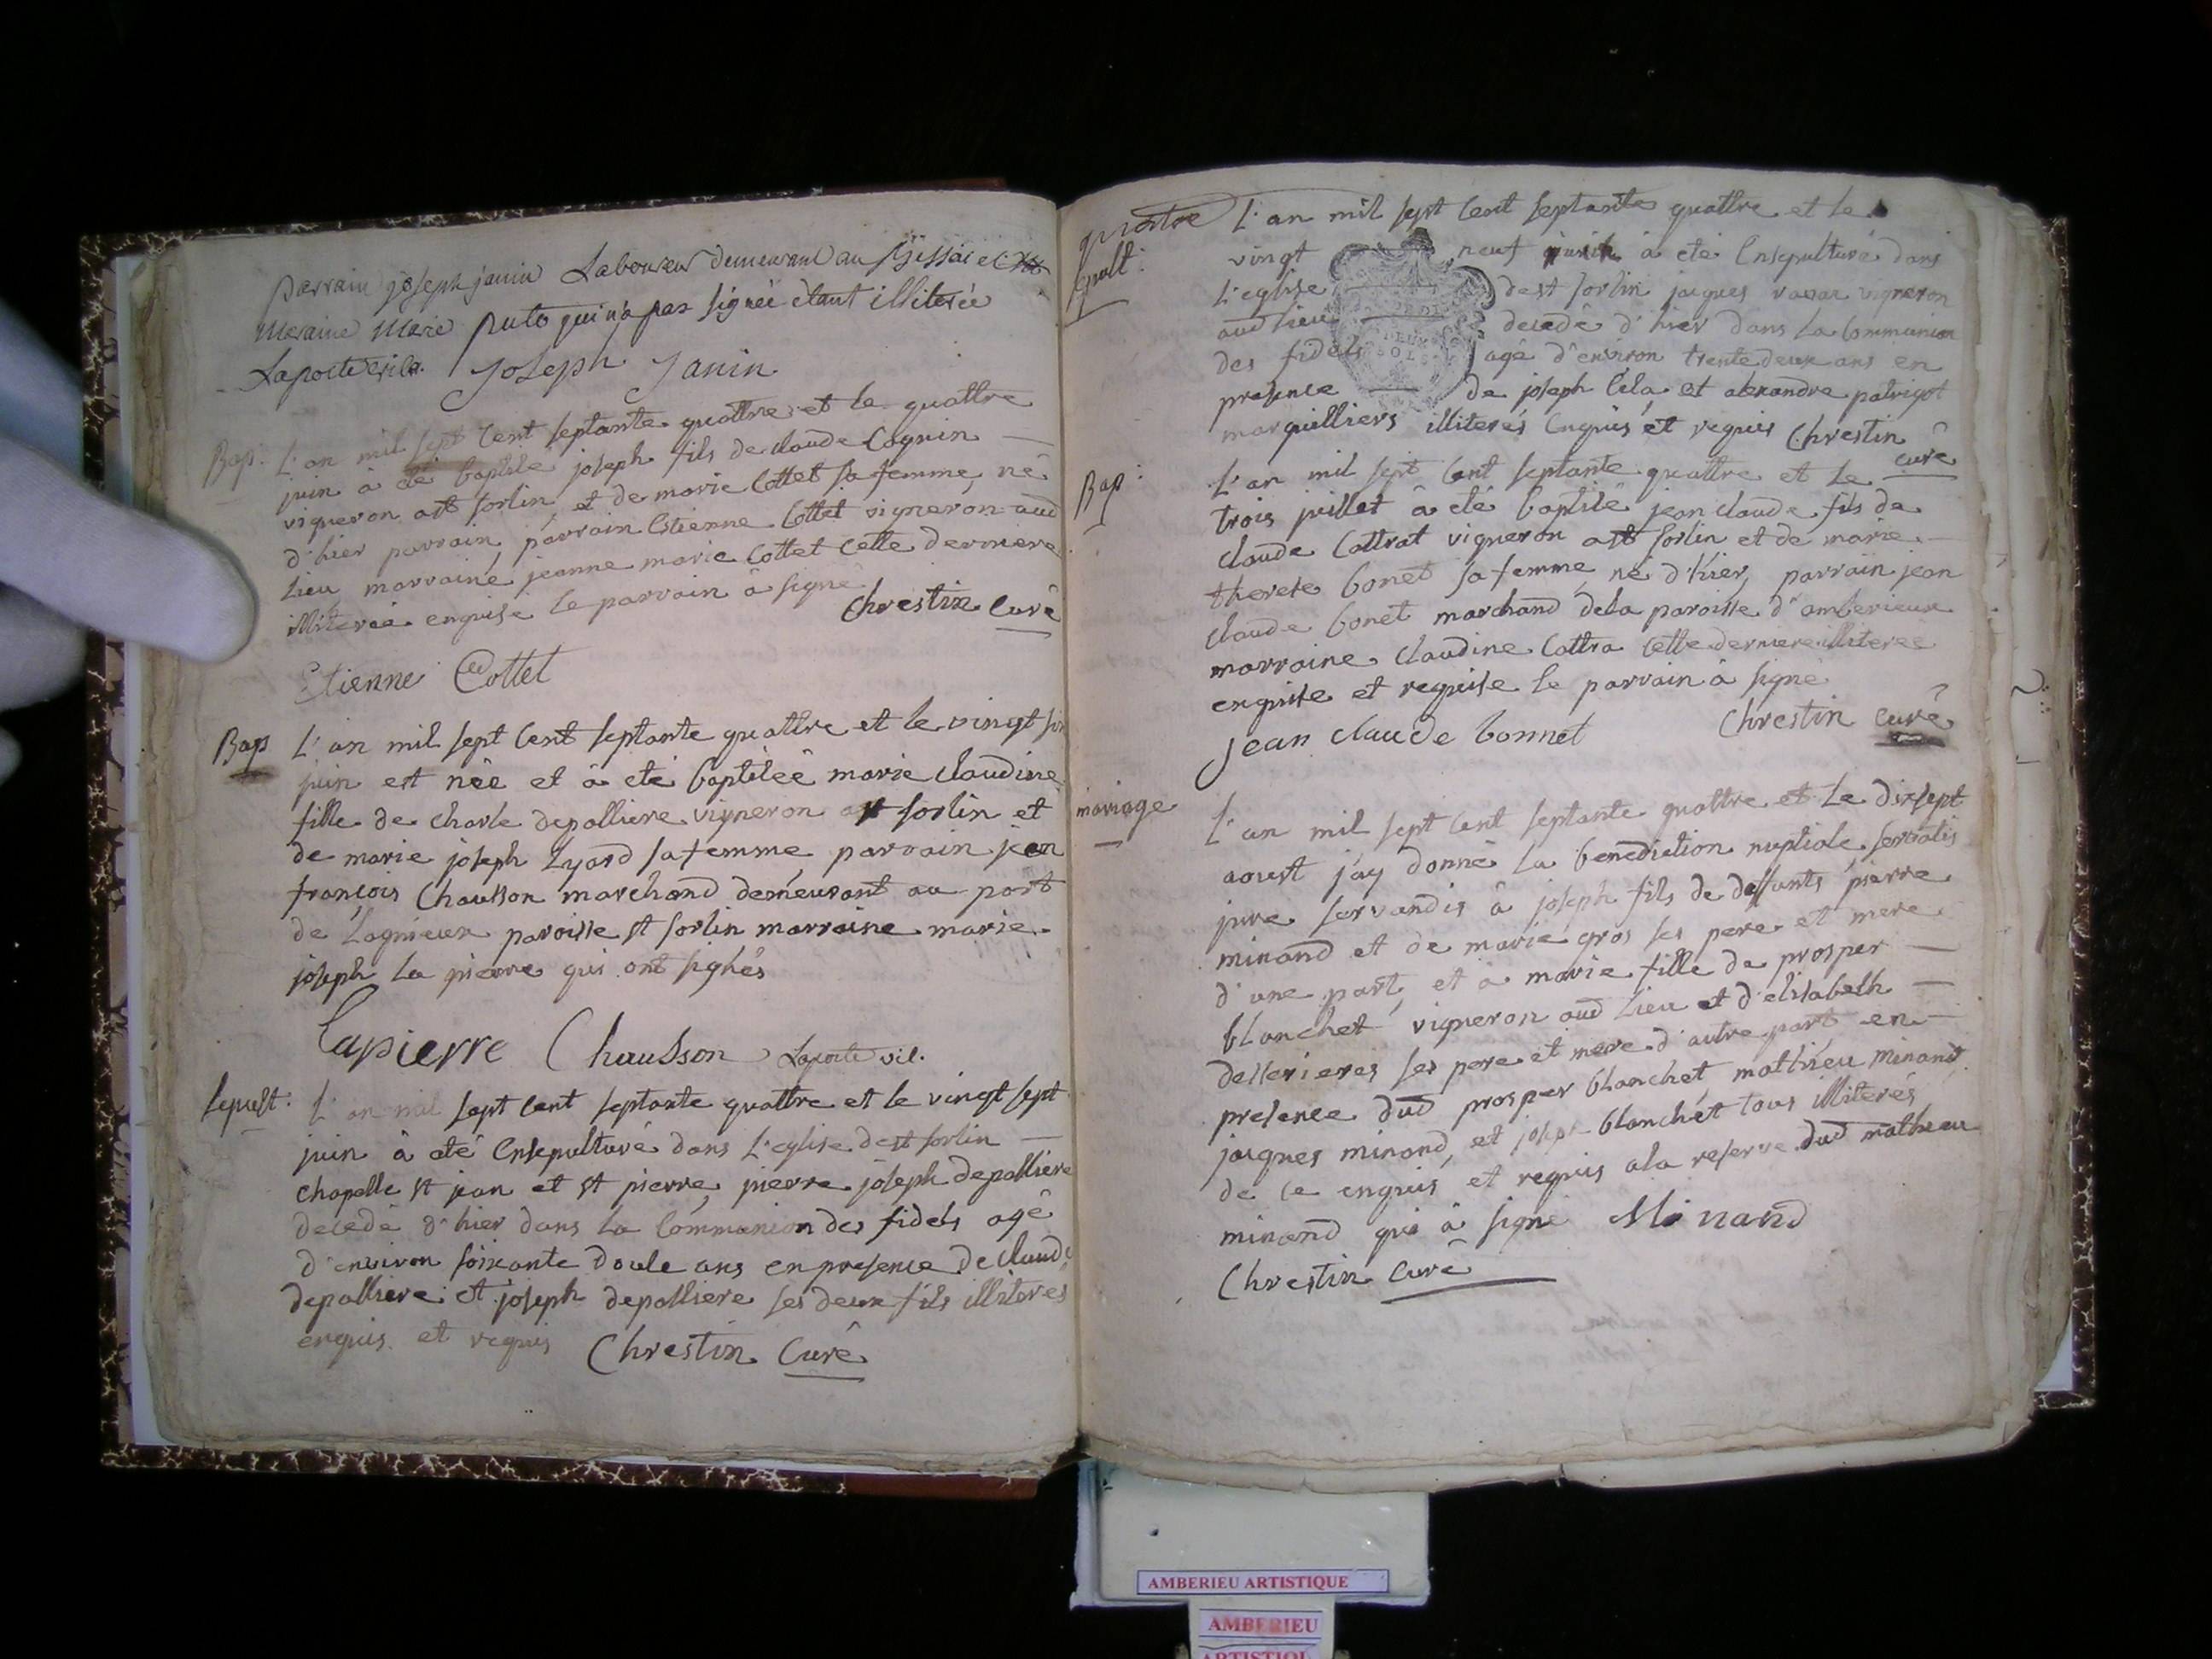 parrain joseph janin Laboureur demeurant au
Maraine Marie puto qui n'a pas signée étant illiterée
Laporte vic. Joseph Janin
Bap: L'an mil sept cent septante quattre et le quattre
juin à eté baptisé joseph fils de claude Cognin
vigneron a st sorlin et de marie Cottet sa femme né
d'hier parrain, parrain Estienne Cottet vigneron aud
lieu marraine jeanne marie Cottet cette derniere
illiterée enquise le parrain à signé
Chrestin Curé
Etienne Cottet
Bap L'an mil sept cent septante quattre et le vingt six
juin est née et à eté baptisée marie claudine
fille de charle depalliere vigneron a st sorlin et
de marie joseph Lyard sa femme, parrain jean
françois Chausson marchand demeurant au port
de Lagnieux paroisse st sorlin marraine marie
joseph la pierre qui ont signés
Lapierre Chausson Laporte vic.
Sepult: L'an mil sept cent septante quattre et le vingt sept
juin à eté Ensepulturé dans L'eglise de st sorlin
chapelle st jean et st pierre, pierre joseph depalliere
decedé d'hier dans la Communion des fidels agé
d'environ soixante douse ans en presence de claude
depalliere et joseph depalliere ses deux fils illiteres
enquis et requis Chrestin Curé
quatre L'an mil sept cent septante quattre et le
Sepult: vingt neuf juin à eté Ensepulturé dans
L'eglise de st sorlin jacques vigneron
aud lieu decedé d'hier dans la Communion
DEUX SOLS
des fidels agé d'environ trente deux ans en
presence de joseph Cela et alexandre patrigot
marguilliers illiterés Enquis et requis Chrestin
curé
Bap: L'an mil sept cent septante quattre et le
trois juillet à eté baptisé jean claude fils de
claude Cottrat vigneron a st sorlin et de marie
therese bonet sa femme, né d'hier, parrain jean
claude bonet marchand de la paroisse d'amberieux
marraine claudine Cottra cette derniere illiterée
enquise et requise le parrain à signé
jean claude bonnet Chrestin curé
mariage L'an mil sept cent septante quattre et le dixsept
aoust j'ay donné la benediction nuptiale servatis
jure servandis à joseph fils de deffunts pierre
minand et de marie gros ses pere et mere
d'une part, et à marie fille de prosper
blanchet vigneron aud lieu et d'elisabeth
desserieres ses pere et mere d'autre part en
presence dud prosper blanchet, mathieu minand
jacques minand, et joseph blanchet tous illiterés
de ce enquis et requis a la reserve dud mathieu
minand qui à signé Minand
Chrestin Curé
AMBERIEU ARTISTIQUE
AMBERIEU
ARTISTIQUE